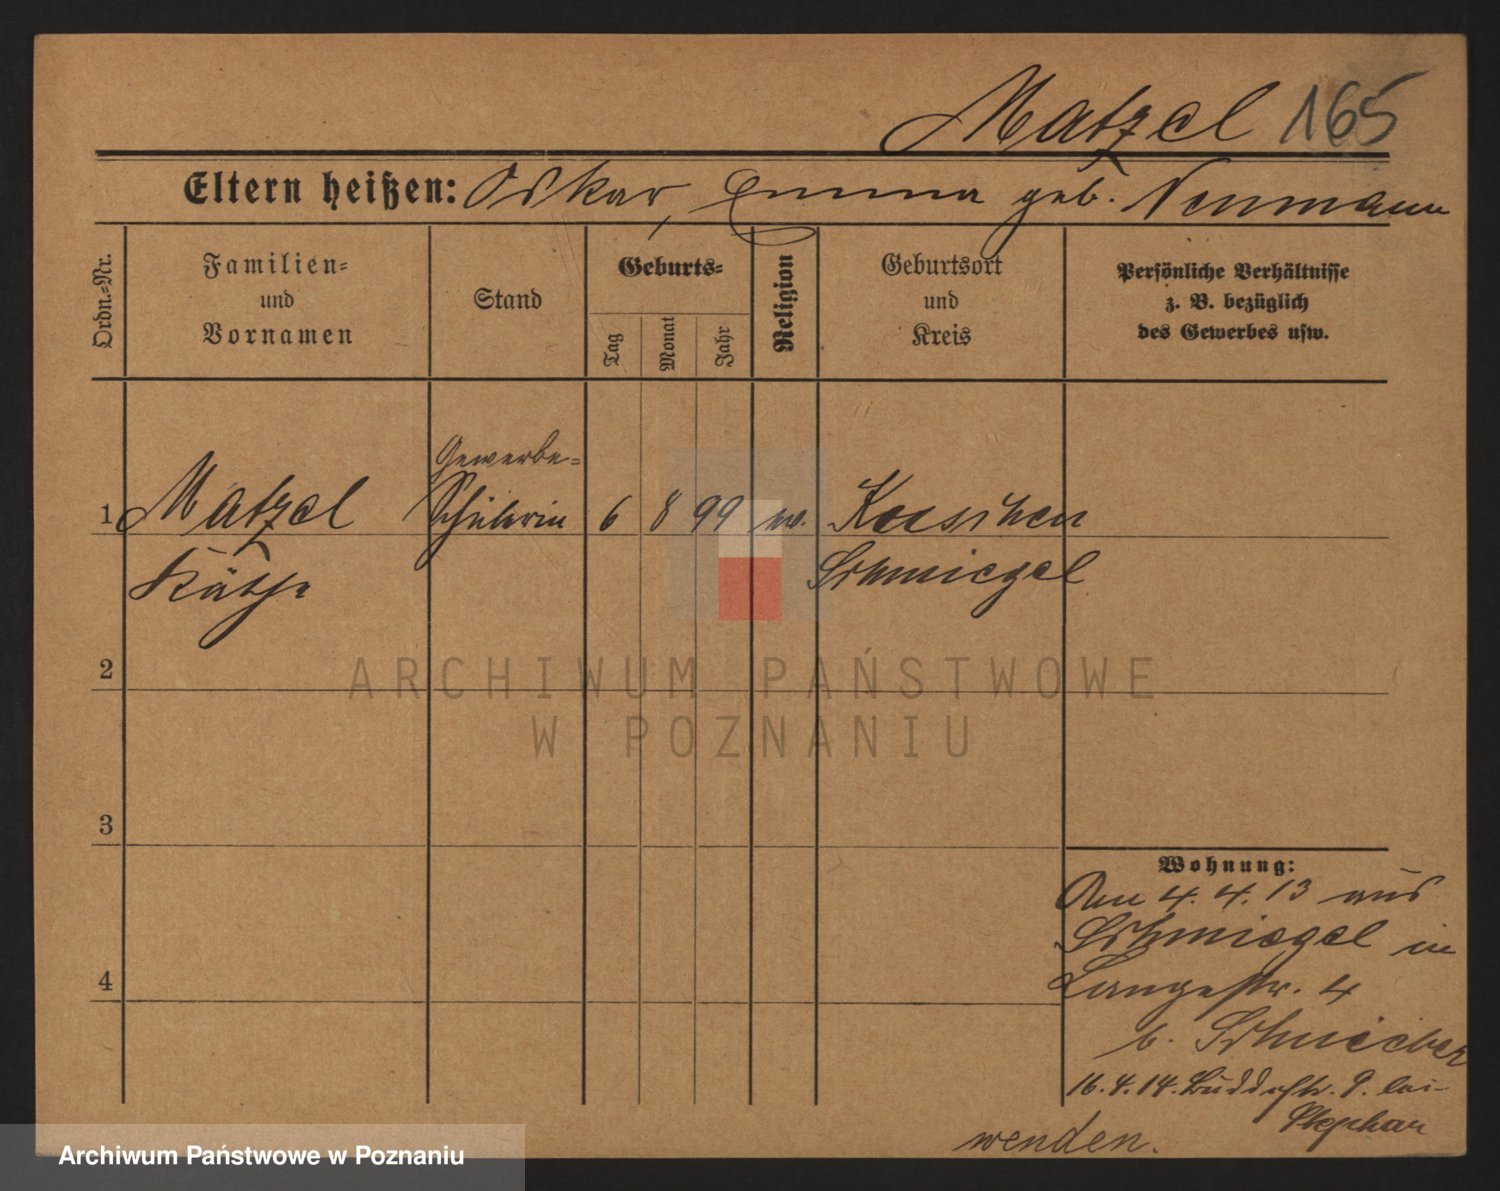 Matzel 165
Eltern heißen: Oskar, Emma geb. Neumann
Ordn.-Nr.
Familien-
und
Vornamen
Stand
Geburts-
Tag
Monat
Jahr
Religion
Geburtsort
und
Kreis
Persönliche Verhältnisse
z. B. bezüglich
des Gewerbes usw.
Gewerbe-
1 Matzel Schülerin 6 8 99
Käthe Schmiegel
2
ARCHIWUM PAŃSTWOWE
W POZNANIU
3
Wohnung:
Am 4.4.13 aus
Schmiegel in
4
Langestr. 4
b.
16.4.14. 9. bei
Stephan
wenden.
Archiwum Państwowe w Poznaniu